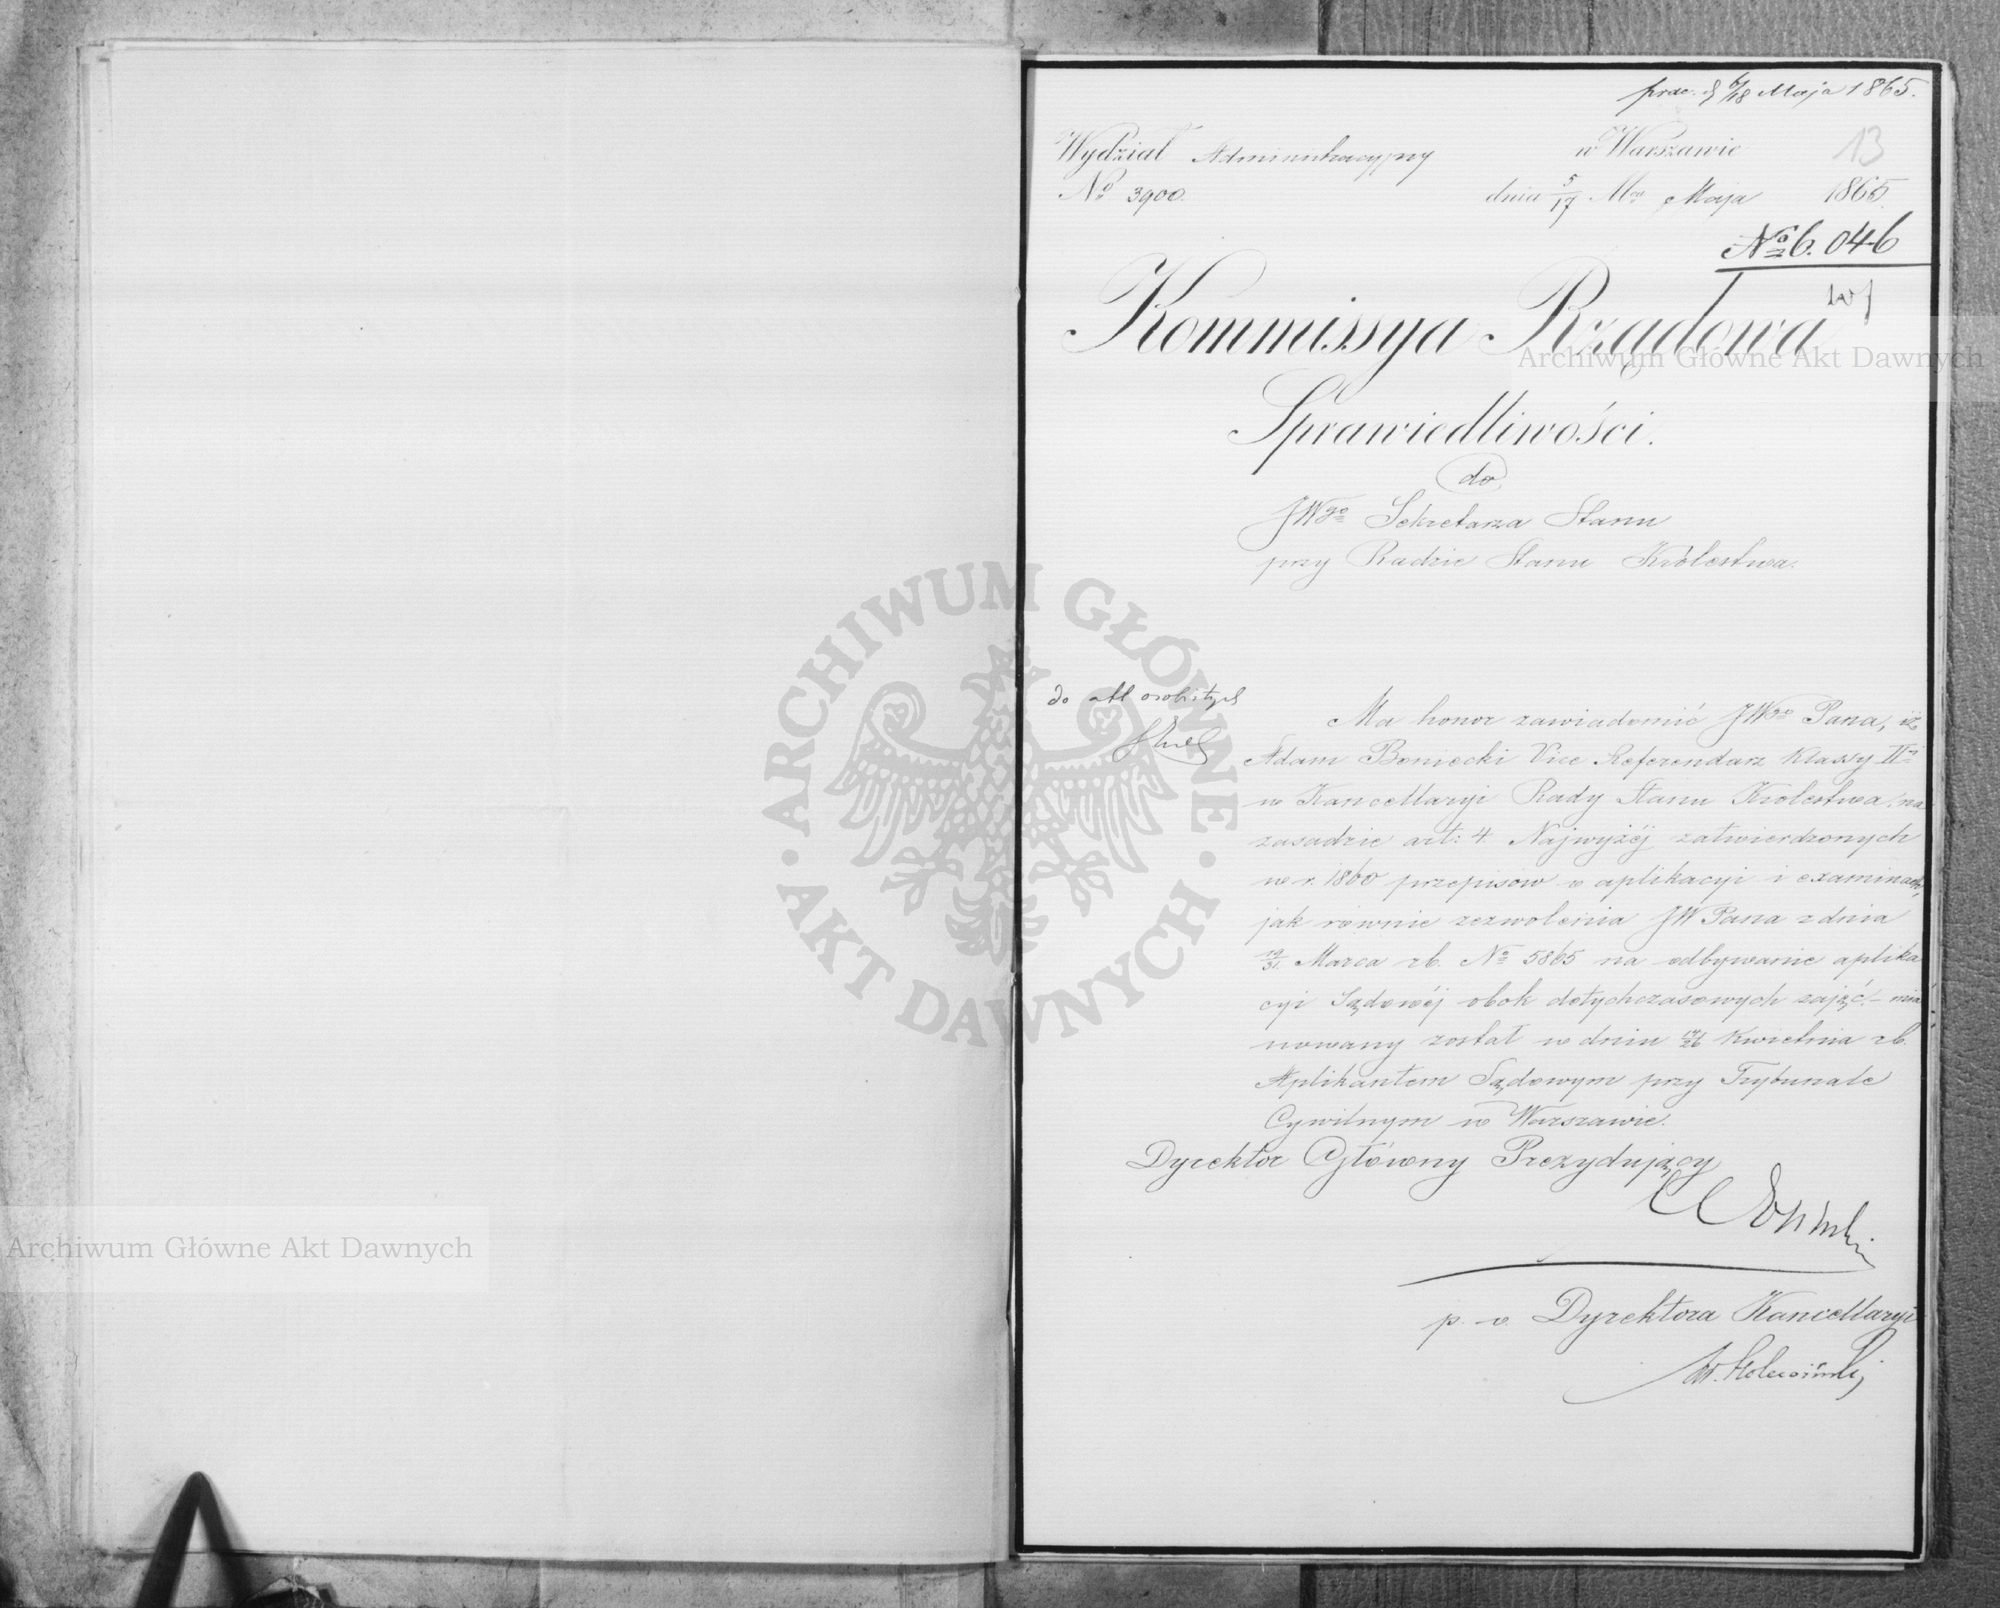 prae. d 6/18 Maja 1865.
Wydział Administracyjny
w Warszawie
13
No 3900.
dnia 5/17 Mca Maja 1865.
No 6.046
Kommissya Rządowa
Sprawiedliwości.
do
JWgo Sekretarza Stanu
przy Radzie Stanu Królestwa.
do akt osobistych
Ma honor zawiadomić JWgo Pana, iż
Adam Boniecki Vice Referendarz Klassy IIej
w Kancellaryi Rady Stanu Królestwa, na
zasadzie art: 4. Najwyżéj zatwierdzonych
w r. 1860 przepisów o aplikacyi i examinach,
jak równie zezwolenia JW Pana z dnia
19/31. Marca rb. No 5865 na odbywanie aplika
cyi Sądowéj obok dotychczasowych zajęć – mia
nowany został w dniu 14/26 Kwietnia rb.
Aplikantem Sądowym przy Trybunale
Cywilnym w Warszawie.
Dyrektor Główny Prezydujący
p. o. Dyrektora Kancellaryi
Archiwum Główne Akt Dawnych
Archiwum Główne Akt Dawnych
ARCHIWUM GŁÓWNE · AKT DAWNYCH ·